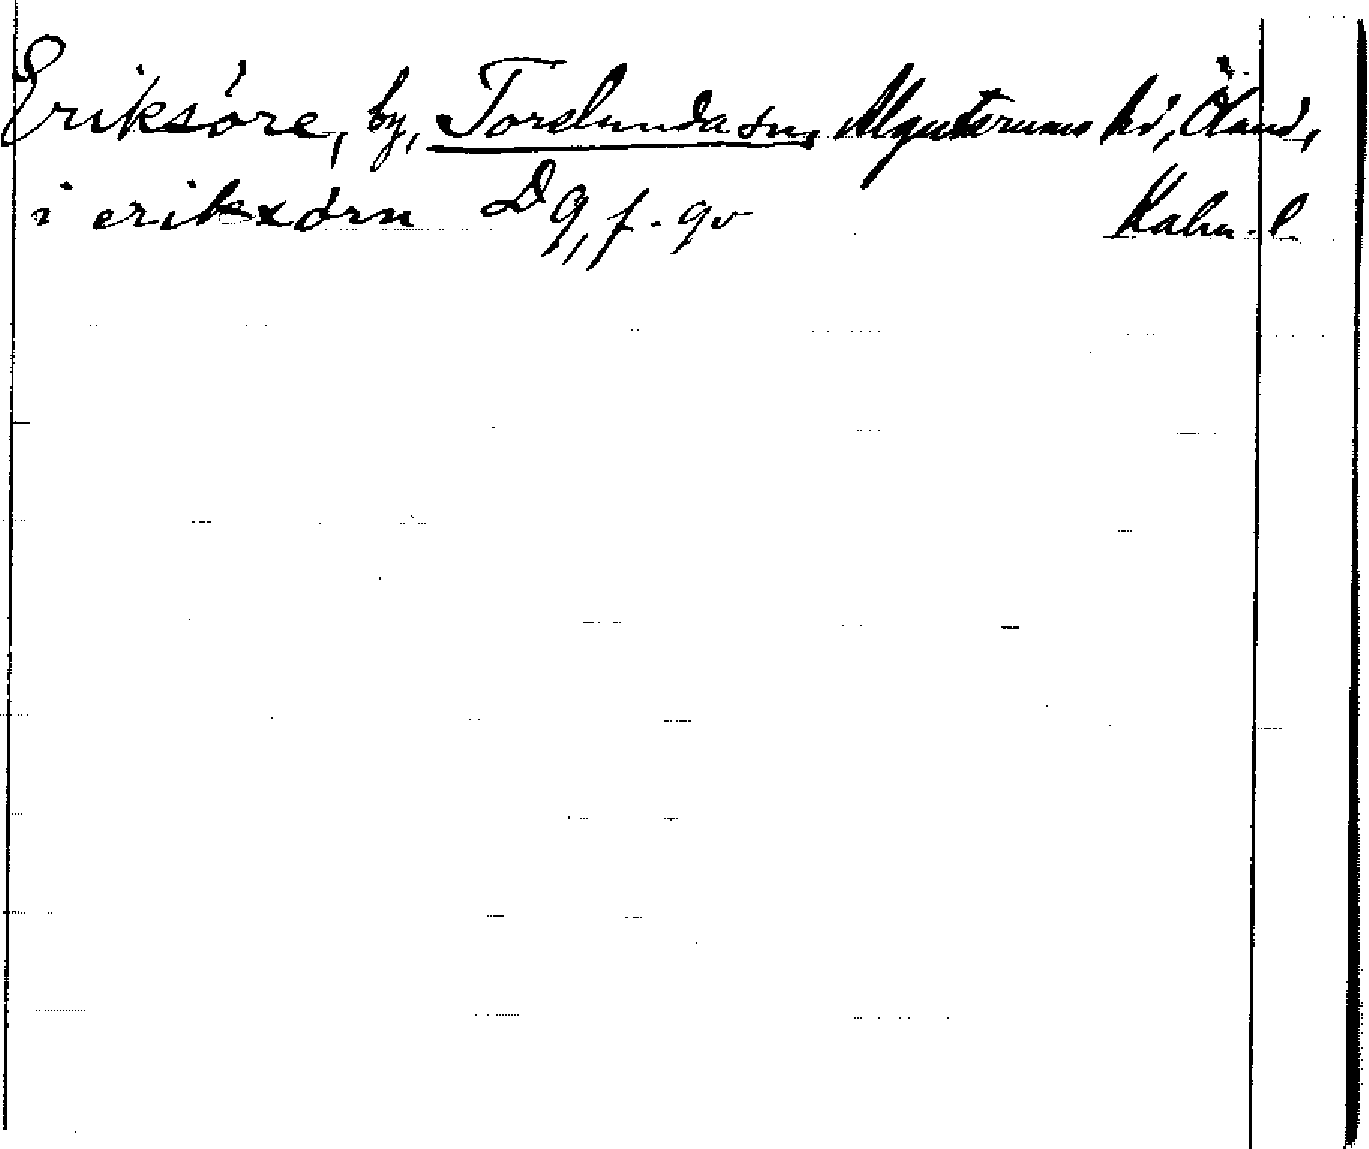 Eriksöre, by, Torslunda sn, Algutsrums hd, Öland,
i erikxörn D 9, f. 9v Kalm. l.